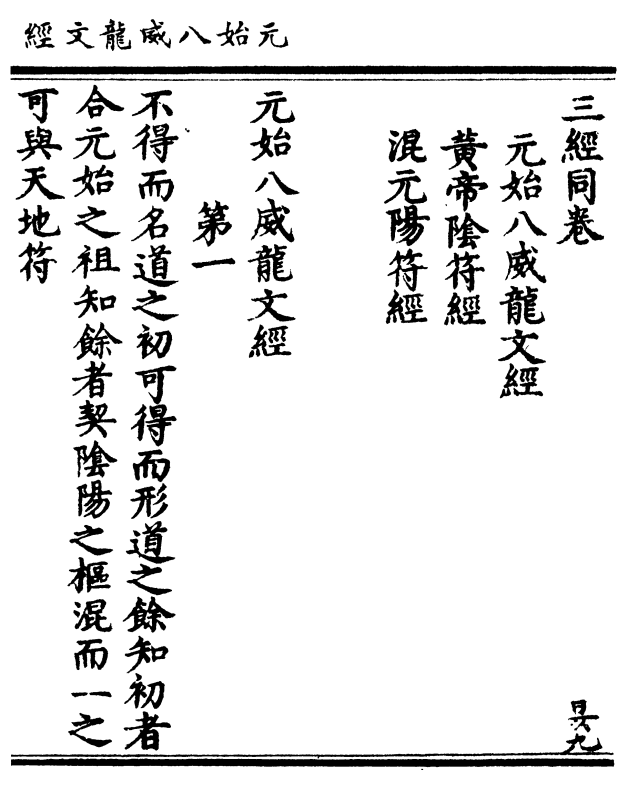 元始八威龍文經
三經同卷
昃九
元始八威龍文經
黃帝陰符經
混元陽符經
元始八威龍文經
第一
不得而名道之初可得而形道之餘知初者
合元始之祖知餘者契陰陽之樞混而一之
可與天地符